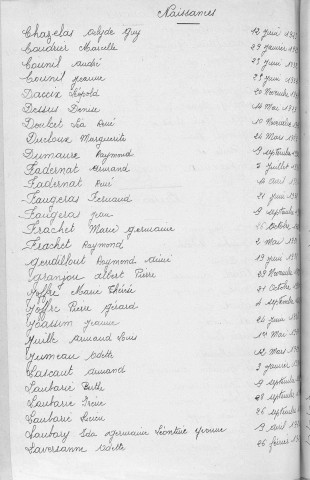 Naissances
Chazelas Clyde Guy 12 juin
Coudrier Marcelle 29 janvier
Counil André 25 juin
Counil Jeanne 25 juin
Daccix Léopold 20 Novembre
Dessus Denise 14 Mai
Doucet Léa René 10 Novembre
Ducloux Marguerite 22 Mars
Dumaure Raymond 9 septembre
Fadernat Armand 5 Juillet
Fadernat René 14 avril
Faugeras Fernand 21 juin
Faugera Jean 9 septembre
Frachet Marie Germaine 16 Octobre
Frachet Raymond 2 Mai
Gendillout Raymond Aimé 19 juin
Granjou Albert Pierre 28 Novembre
Joffre Marie Thérèse 21 Octobre
Joffre Pierre Gérard 4 septembre
Joassim Jeanne 26 juin
Juille Armand Louis 1er Mai
Jumeau Odette 12 Mars
Lascaut Armand 2 janvier
Laubarie Berthe 9 septembre
Laubarie Irène 28 septembre
Laubarie Lucien 26 septembre
Laubary Léa Germaine Léontine Yvonne 9 avril
Laversanne Odette 26 février